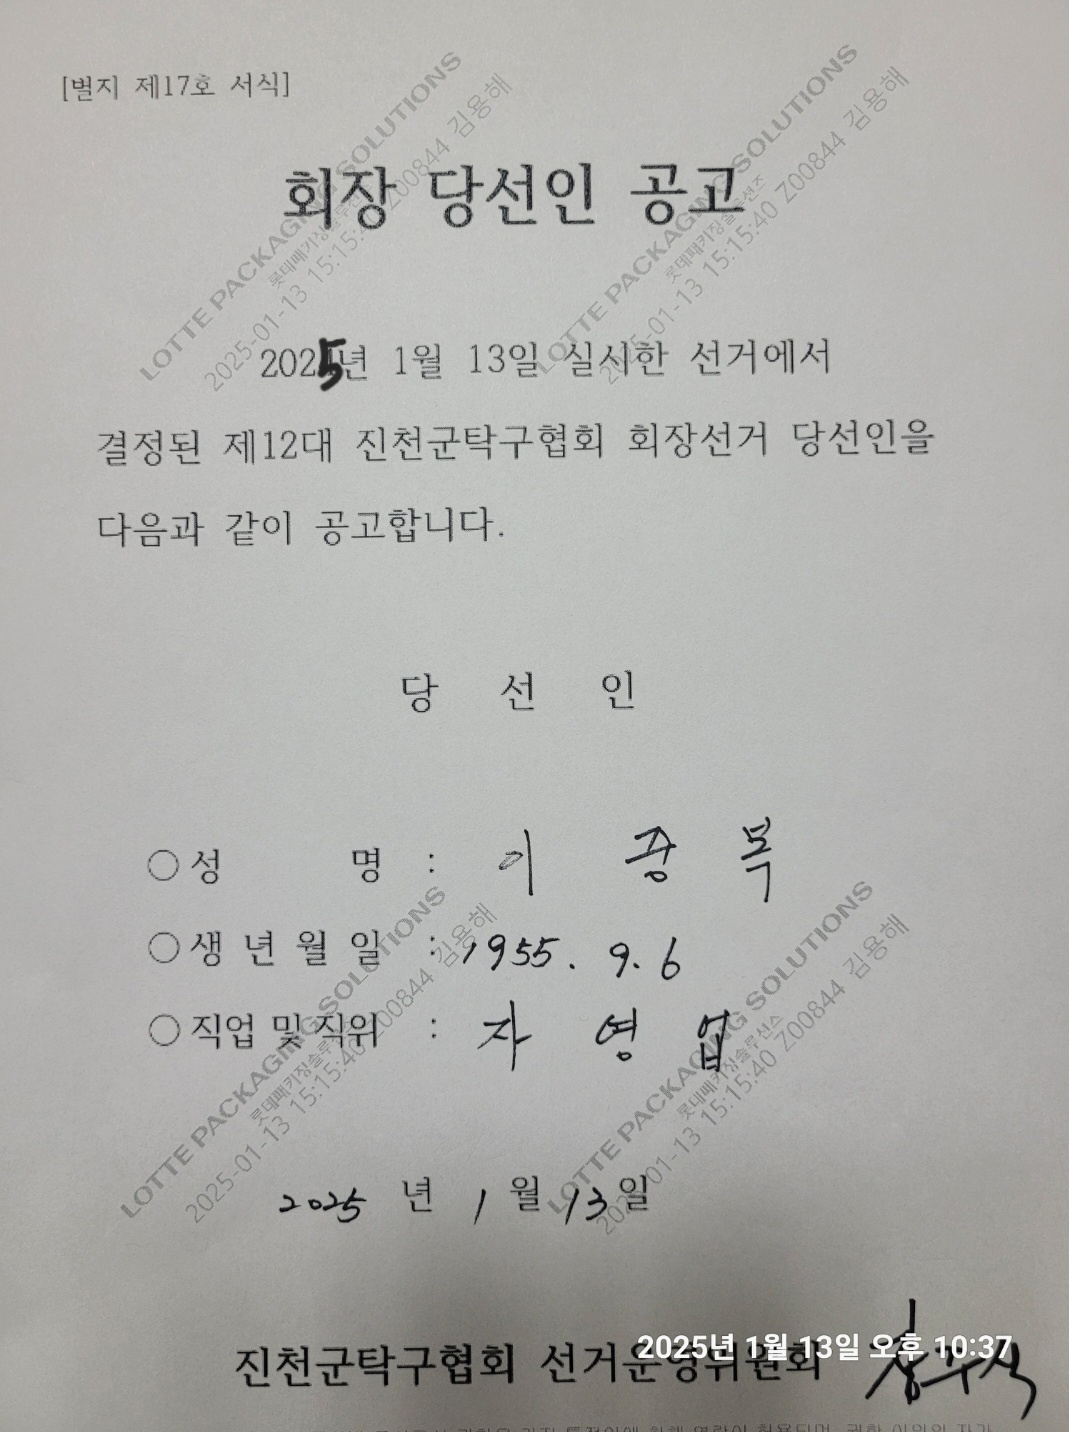 [별지 제17호 서식]
회장 당선인 공고
2025년 1월 13일 실시한 선거에서
결정된 제12대 진천군탁구협회 회장선거 당선인을
다음과 같이 공고합니다.
당 선 인
○ 성 명 : 이 종 복
○ 생 년 월 일 : 1955. 9. 6
○ 직업 및 직위 : 자 영 업
2025 년 1 월 13 일
진천군탁구협회 선거운영위원회
2025년 1월 13일 오후 10:37
LOTTE PACKAGING SOLUTIONS
롯데패키징솔루션즈
2025-01-13 15:15:40 Z00844 김용해
LOTTE PACKAGING SOLUTIONS
롯데패키징솔루션즈
2025-01-13 15:15:40 Z00844 김용해
LOTTE PACKAGING SOLUTIONS
롯데패키징솔루션즈
2025-01-13 15:15:40 Z00844 김용해
LOTTE PACKAGING SOLUTIONS
롯데패키징솔루션즈
2025-01-13 15:15:40 Z00844 김용해